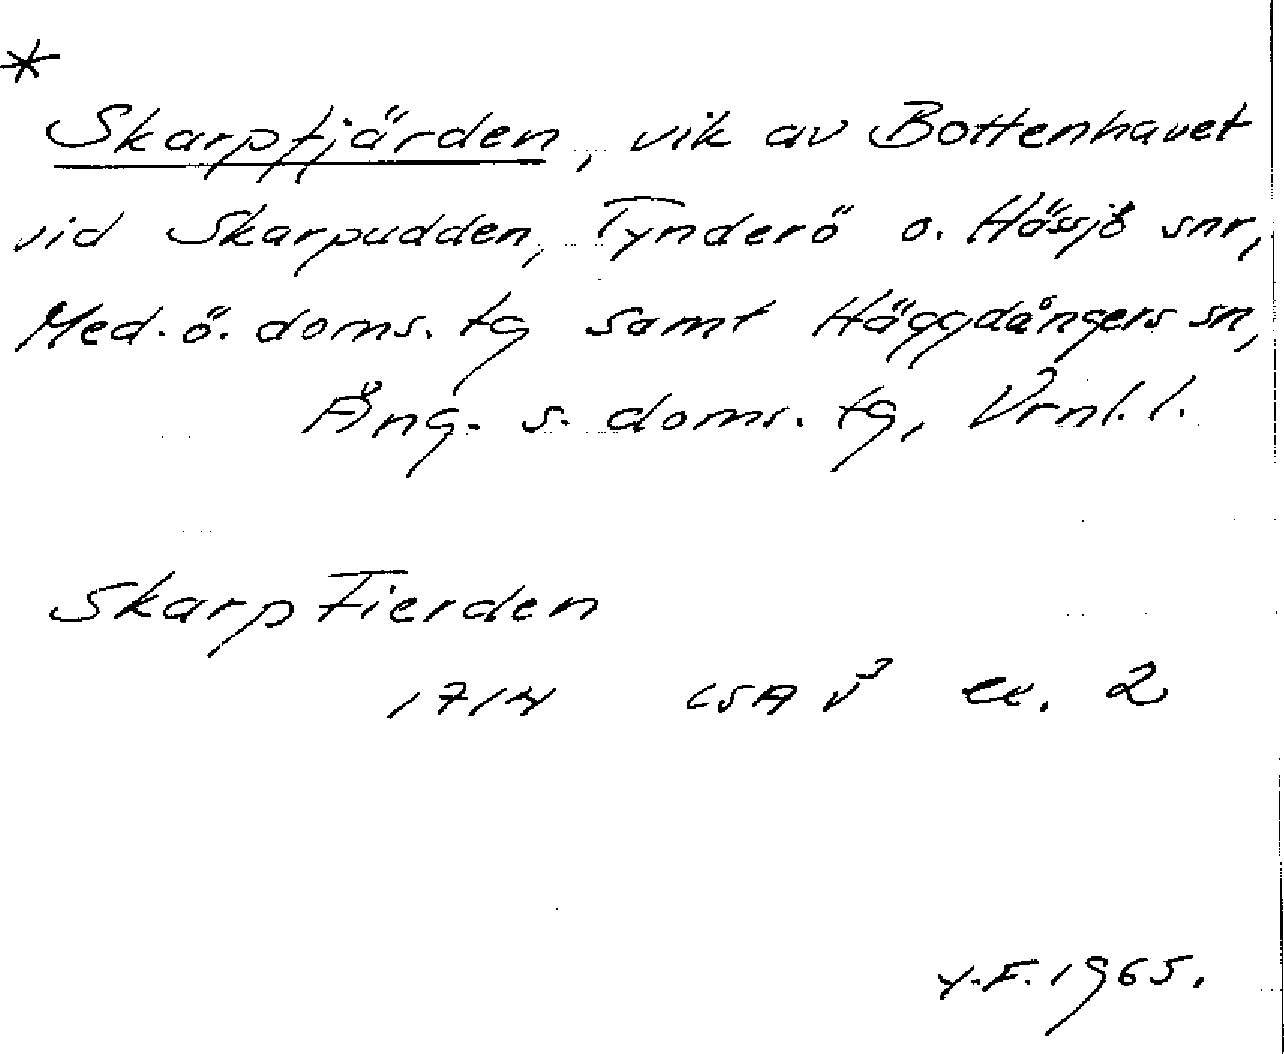 *
Skarpfjärden, vik av Bottenhavet
vid Skarpudden, Tynderö o. Hässjö snr,
Med. ö. doms. tg samt Häggdångers sn,
Äng. s. doms. tg, Vrnl. l.
Skarp Fierden
1714 LSA V³ ex. 2
Y.F. 1965.